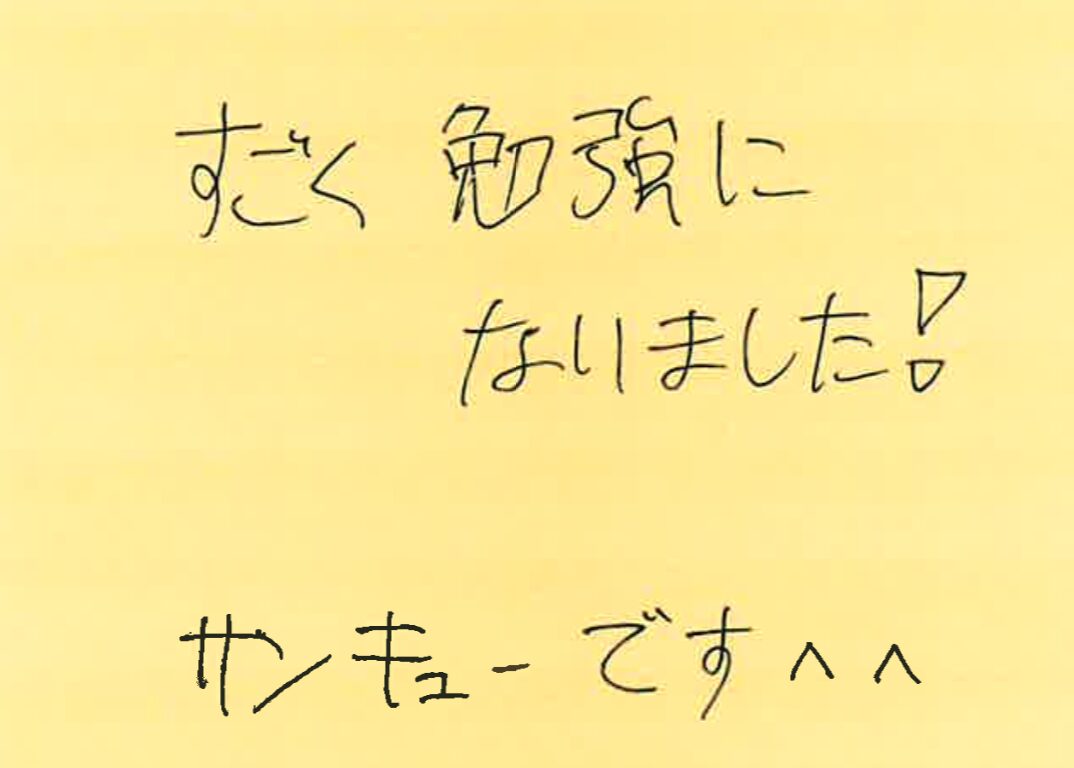 すごく勉強に
なりました!
サンキューです^^